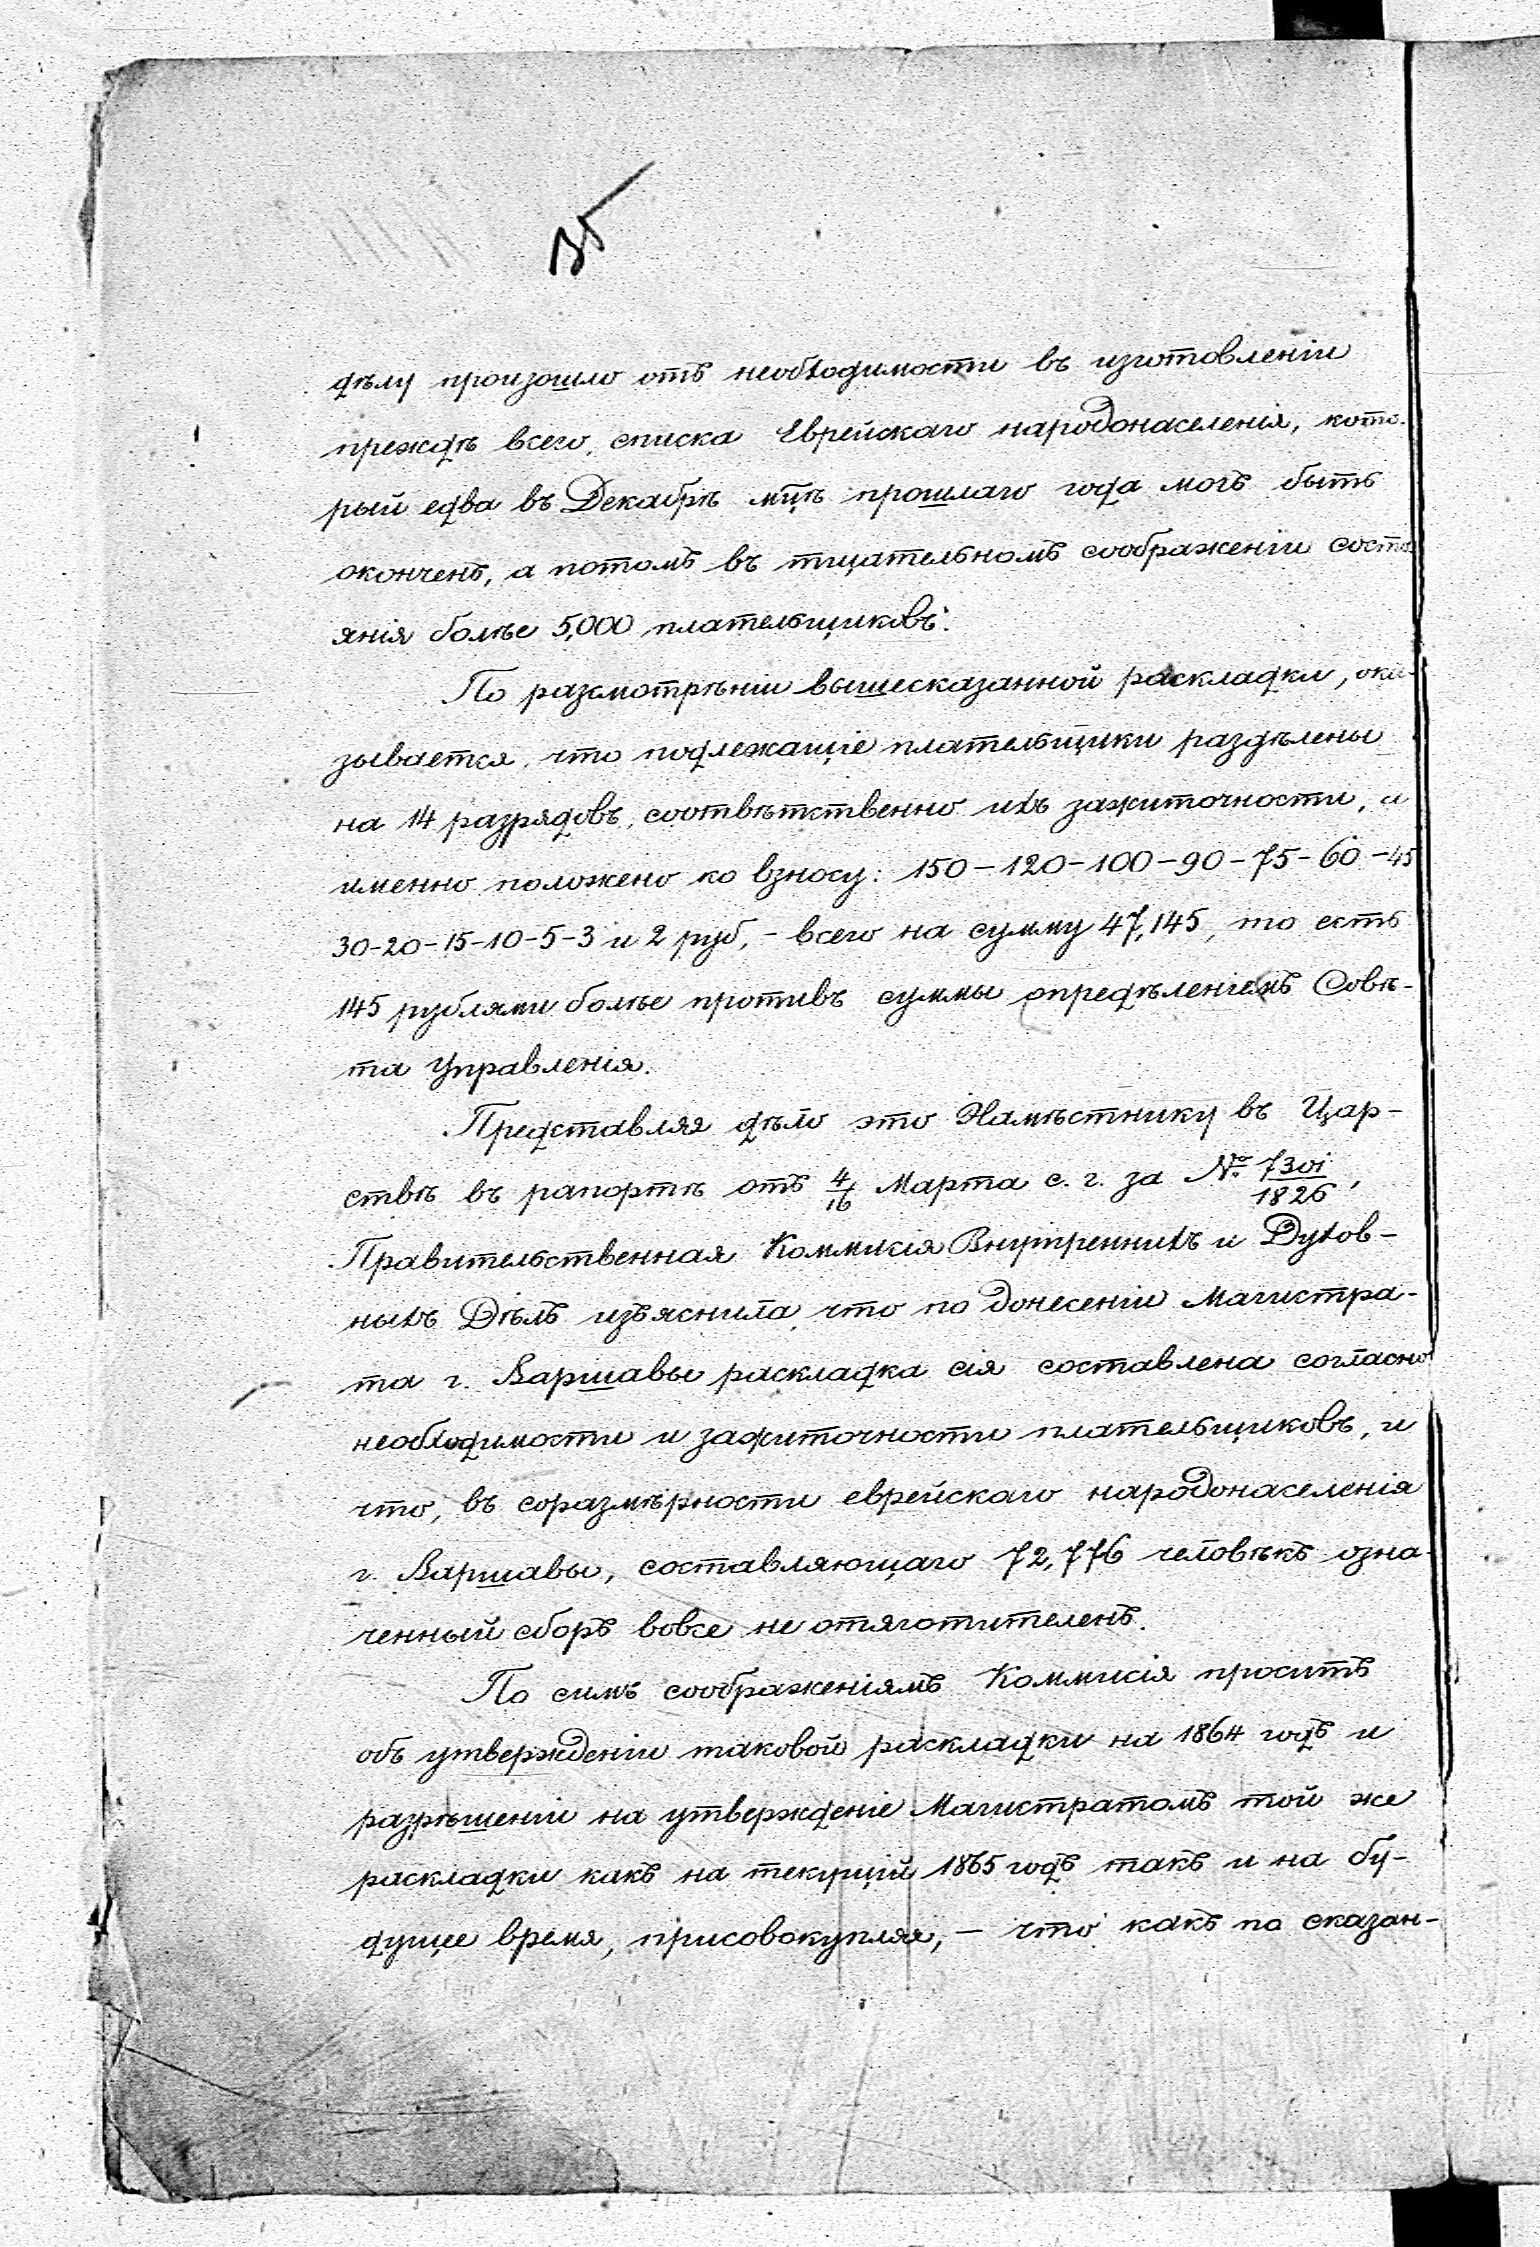 35
дѣлу произошло отъ необходимости въ изготовленіи
прежде всего, списка Еврейскаго народонаселенія, кото-
рый едва въ Декабрѣ мцѣ прошлаго года могъ быть
оконченъ, а потомъ въ тщательномъ соображеніи состо
янія болѣе 5,000 плательщиковъ.
По разсмотрѣніи вышесказанной раскладки, ока-
зывается, что подлежащіе плательщики раздѣлены
на 14 разрядовъ, соотвѣтственно ихъ зажиточности, а
именно положено ко взносу: 150-120-100-90-75-60-45
30-20-15-10-5-3 и 2 руб, - всего на сумму 47,145, то есть
145 рублями болѣе противъ суммы опредѣленіемъ Совѣ-
та Управленія.
Представляя дѣло это Намѣстнику въ Цар-
ствѣ въ рапортѣ отъ 4/16 Марта с. г. за № 7301/1826,
Правительственная Коммисія Внутреннихъ и Духов-
ныхъ Дѣлъ изъяснила, что по донесеніи Магистра-
та г. Варшавы раскладка сія составлена согласно
необходимости и зажиточности плательщиковъ, и
что, въ соразмѣрности еврейскаго народонаселенія
г. Варшавы, составляющаго 72,776 человѣкъ озна-
ченный сборъ вовсе не отяготителенъ.
По симъ соображеніямъ Коммисія проситъ
объ утвержденіи таковой раскладки на 1864 годъ и
разрѣшеніи на утвержденіе Магистратомъ той же
раскладки какъ на текущій 1865 годъ такъ и на бу-
дущее время, присовокупляя, - что какъ по сказан-